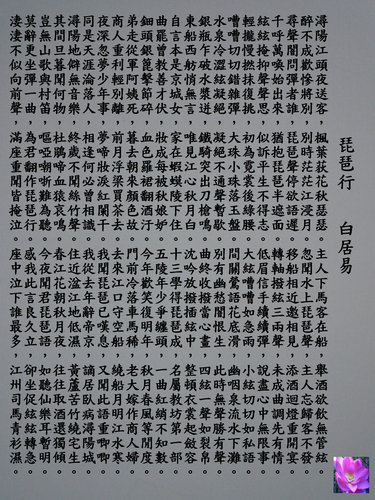 琵琶行 白居易
潯陽江頭夜送客，楓葉荻花秋瑟瑟。主人下馬客在船，舉酒欲飲無管絃。
醉不成歡慘將別，別時茫茫江浸月。忽聞水上琵琶聲，主人忘歸客不發。
尋聲闇問彈者誰，琵琶聲停欲語遲。移船相近邀相見，添酒迴燈重開宴。
千呼萬喚始出來，猶抱琵琶半遮面。轉軸撥絃三兩聲，未成曲調先有情。
絃絃掩抑聲聲思，似訴平生不得志。低眉信手續續彈，說盡心中無限事。
輕攏慢撚抹復挑，初為霓裳後綠腰。大絃嘈嘈如急雨，小絃切切如私語。
嘈嘈切切錯雜彈，大珠小珠落玉盤。間關鶯語花底滑，幽咽泉流水下灘。
水泉冷澀絃凝絕，凝絕不通聲暫歇。別有幽愁闇恨生，此時無聲勝有聲。
銀瓶乍破水漿迸，鐵騎突出刀槍鳴。曲終收撥當心畫，四絃一聲如裂帛。
東船西舫悄無言，唯見江心秋月白。沈吟放撥插絃中，整頓衣裳起斂容。
自言本是京城女，家在蝦蟆陵下住。十三學得琵琶成，名屬教坊第一部。
曲罷曾教善才伏，妝成每被秋娘妒。五陵年少爭纏頭，一曲紅綃不知數。
鈿頭銀篦擊節碎，血色羅裙翻酒汙。今年歡笑復明年，秋月春風等閒度。
弟走從軍阿姨死，暮去朝來顏色故。門前冷落車馬稀，老大嫁作商人婦。
商人重利輕別離，前月浮梁買茶去。去來江口守空船，繞船月明江水寒。
夜深忽夢少年事，夢啼妝淚紅闌干。我聞琵琶已嘆息，又聞此語重唧唧。
同是天涯淪落人，相逢何必曾相識。我從去年辭帝京，謫居臥病潯陽城。
潯陽地僻無音樂，終歲不聞絲竹聲。住近湓江地低濕，黃蘆苦竹繞宅生。
其間旦暮聞何物，杜鵑啼血猿哀鳴。春江花朝秋月夜，往往取酒還獨傾。
豈無山歌與村笛，嘔啞嘲哳難為聽。今夜聞君琵琶語，如聽仙樂耳暫明。
莫辭更坐彈一曲，為君翻作琵琶行。感我此言良久立，卻坐促絃絃轉急。
淒淒不似向前聲，滿座重聞皆掩泣。座中泣下誰最多，江州司馬青衫濕。